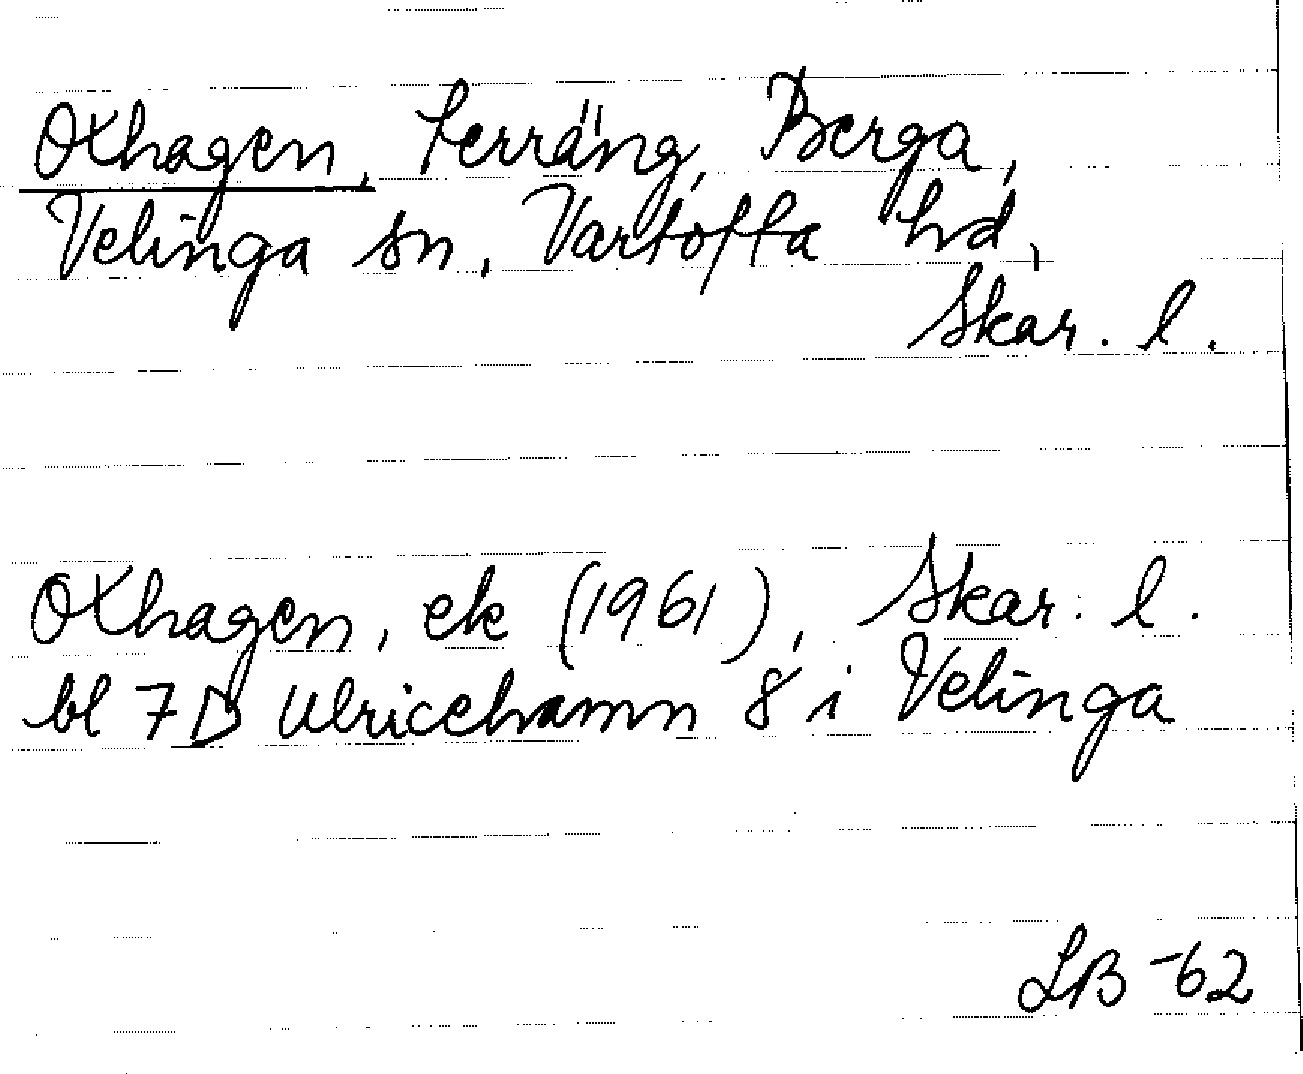 Oxhagen, terräng, Berga,
Velinga sn, Vartofta hd,
Skar. l.
Oxhagen, ek (1961), Skar. l.
bl 7D Ulricehamn 8 i Velinga
LB -62